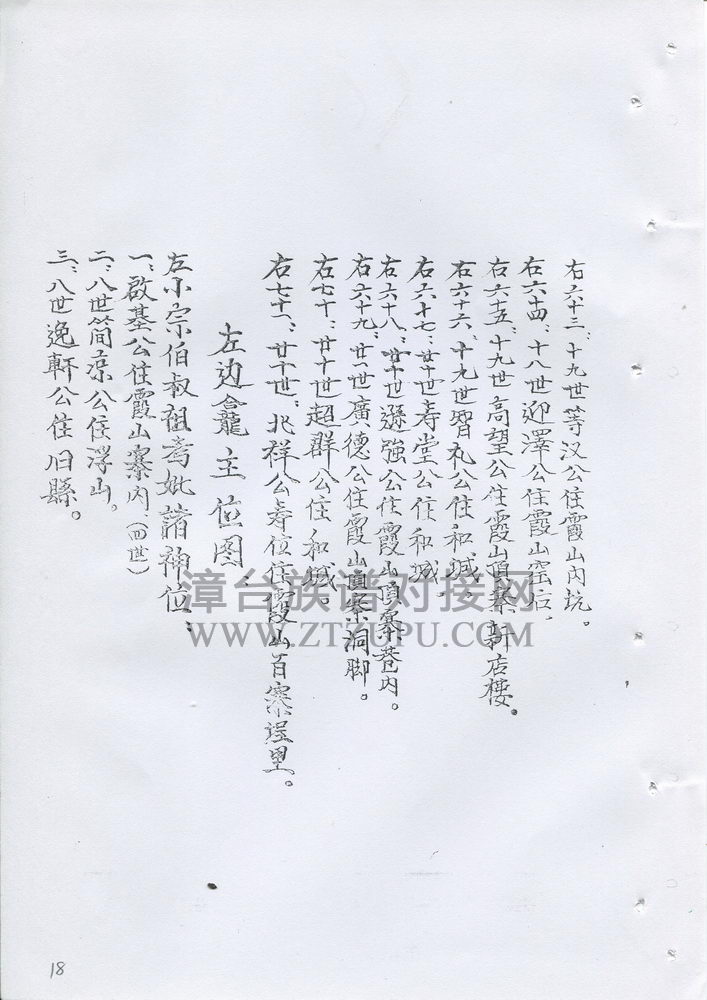 右六十三：十九世等汉公住霞山内坑。
右六十四：十八世迎泽公住霞山窑后。
右六十五：十九世高望公住霞山顶寨新店楼。
右六十六：十九世智礼公住和城。
右六十七：廿十世寿堂公住和城。
右六十八：廿十世遜強公住霞山顶寨巷内。
右六十九：廿一世廣德公住霞山頂寨洞脚。
右七十：廿十世超群公住和城。
右七十一：廿世：兆祥公寿位住霞山百寨里。
左边龛主位图：
左小宗伯叔祖考妣諸神位：
一：啟基公住霞山寨内：（四世）
二：八世简凉公住浮山。
三：八世逸軒公住旧縣。
漳台族谱对接网
WWW.ZTZUPU.COM
18